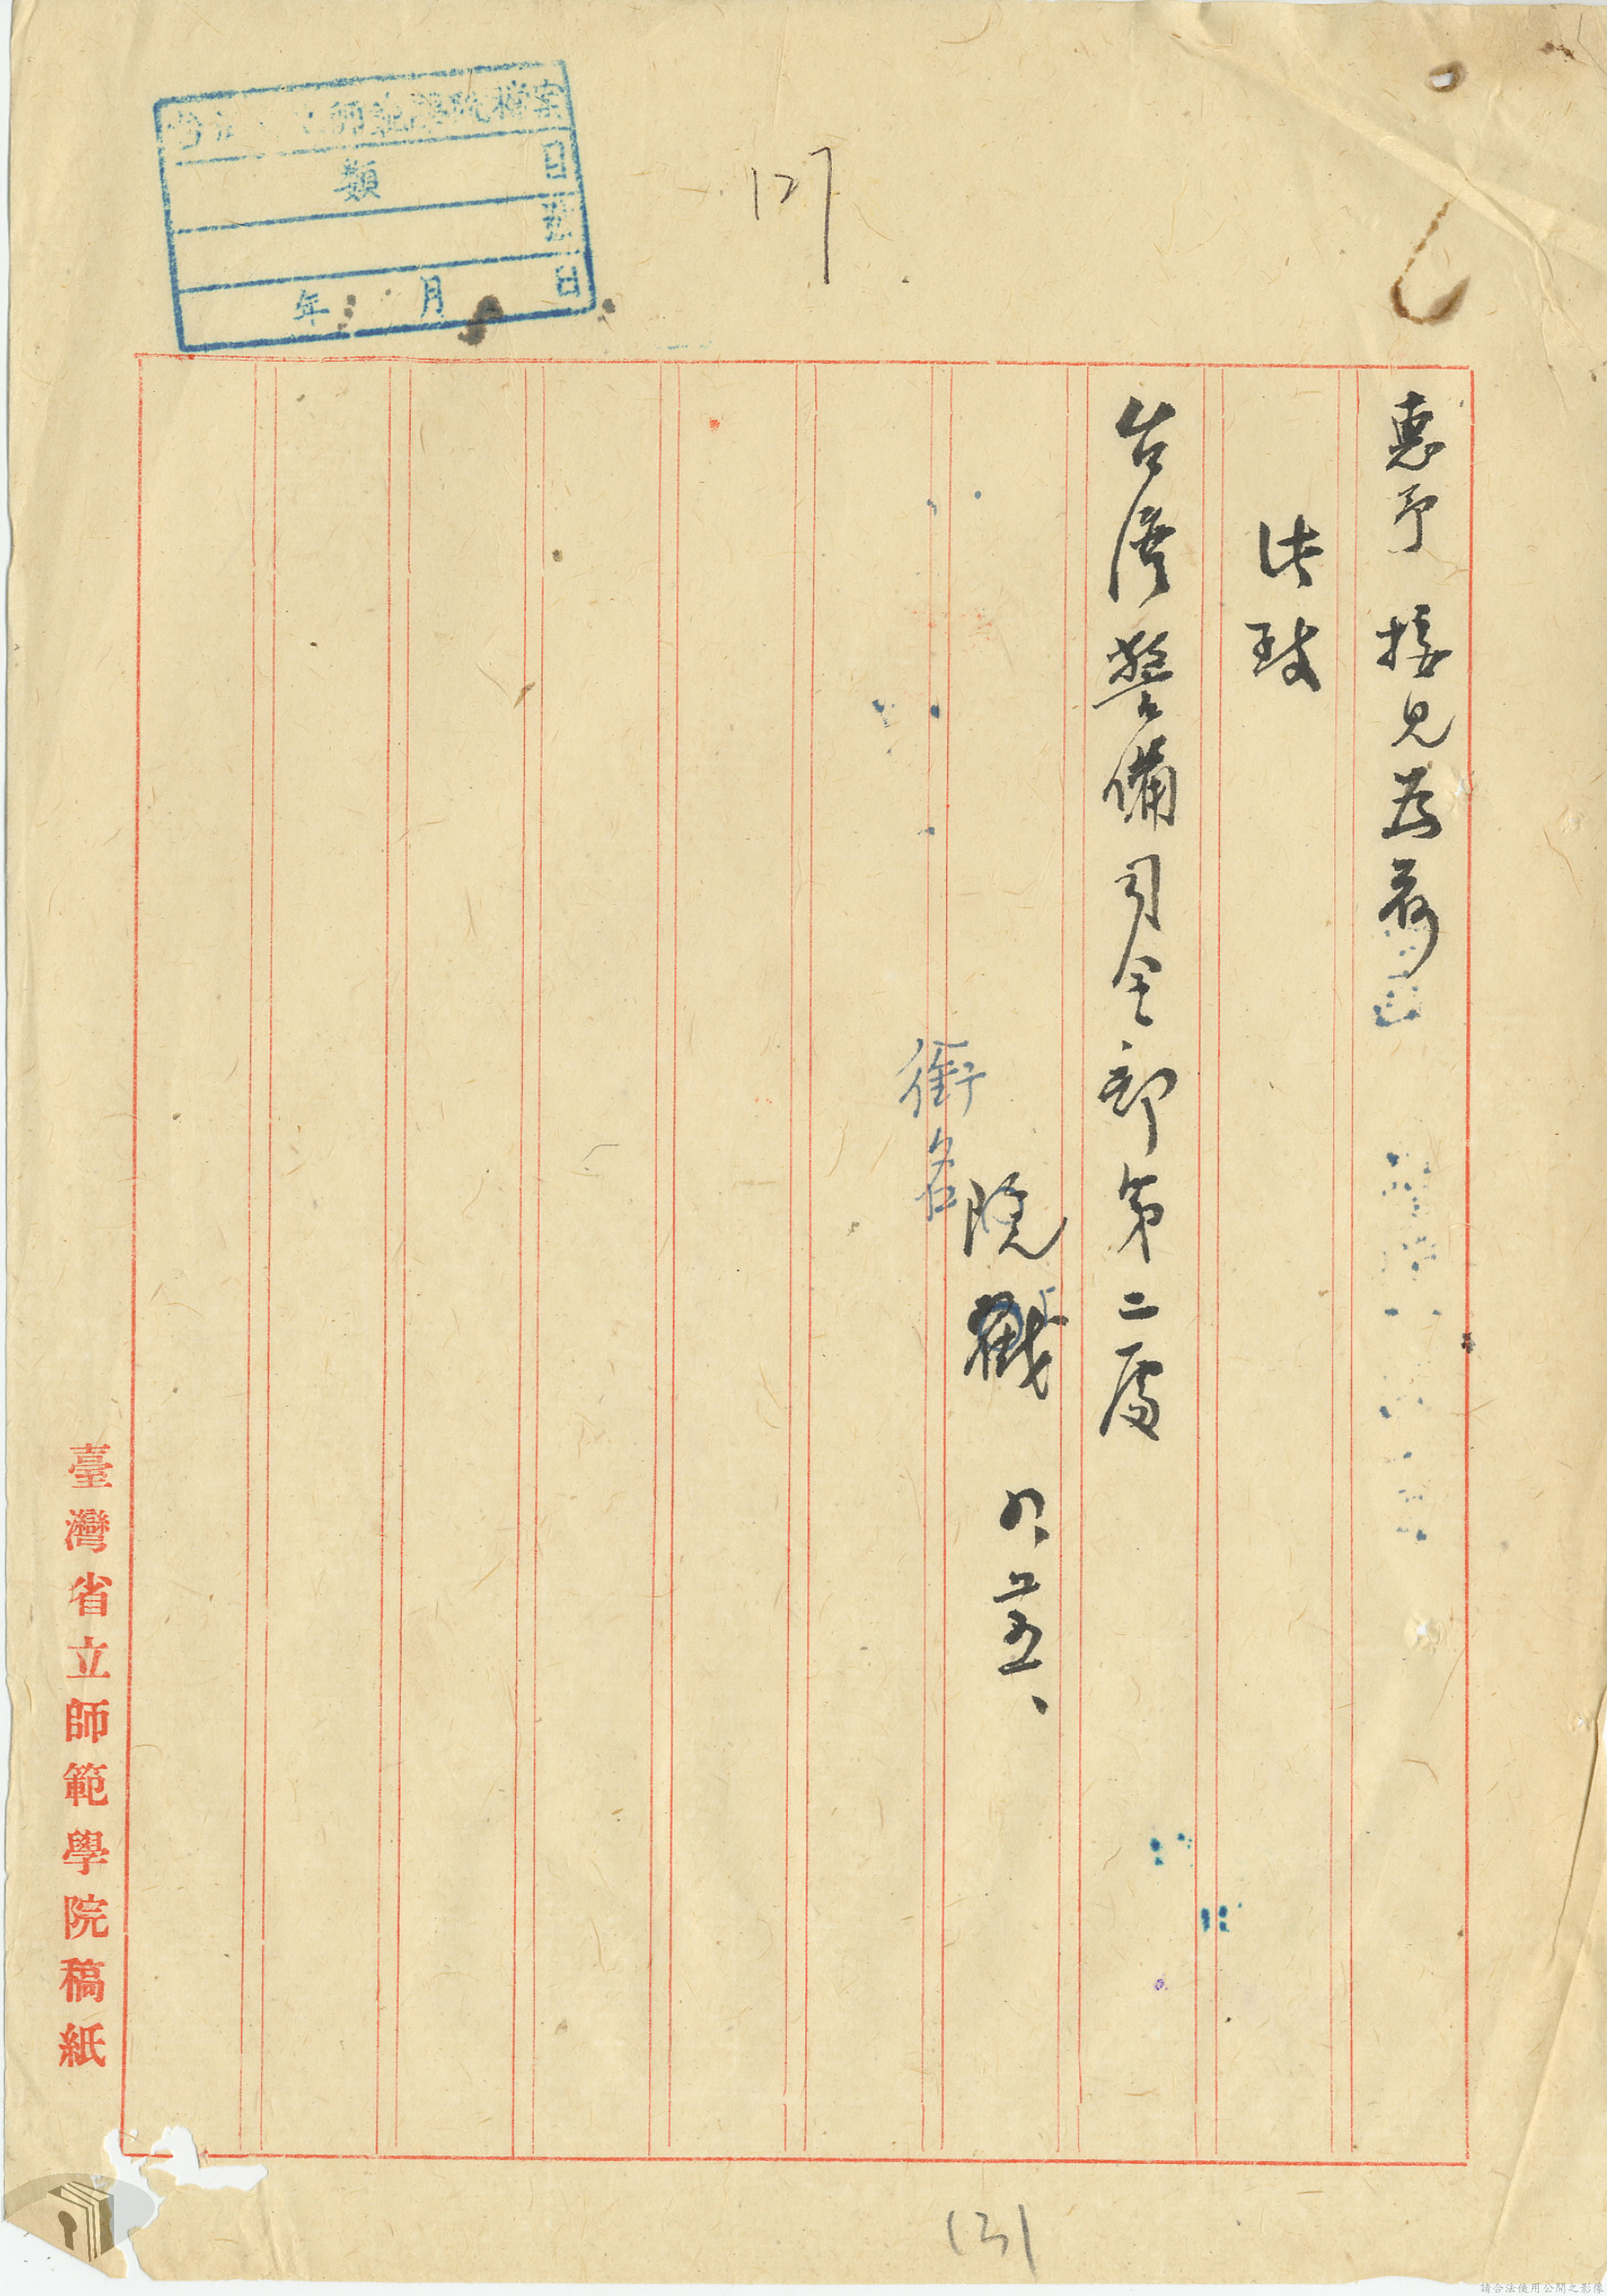 惠予 接見為荷
此致
台灣警備司令部第二處
院戳 九、廿五、
銜名
臺灣省立師範學院稿紙
師範學院檔案
類 目
號
年 月 日
(3)
請合法使用公開之影像